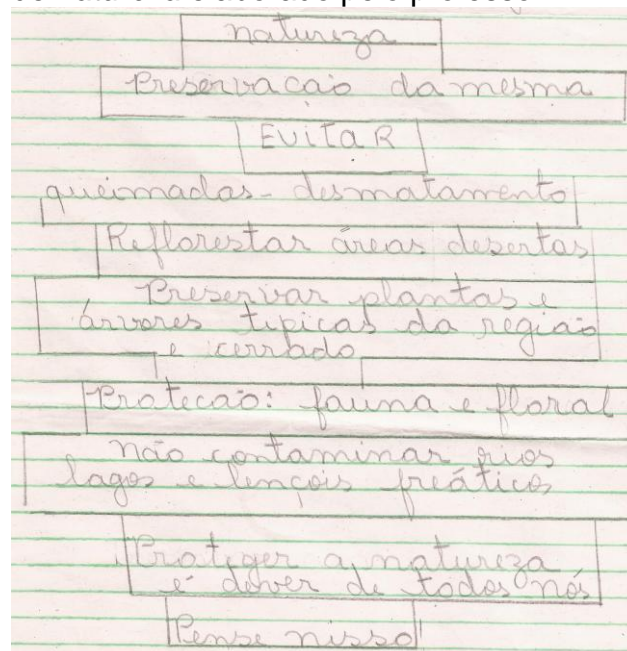 natureza
Preservacaõ da mesma
EVITAR
queimadas - desmatamento
Reflorestar áreas desertas
Preservar plantas e
árvores tipicas da região
e cerrado
Protecaõ: fauna e floral
não contaminar rios
lagos e lençois freáticos
Proteger a natureza
é dever de todos nós
Pense nisso!